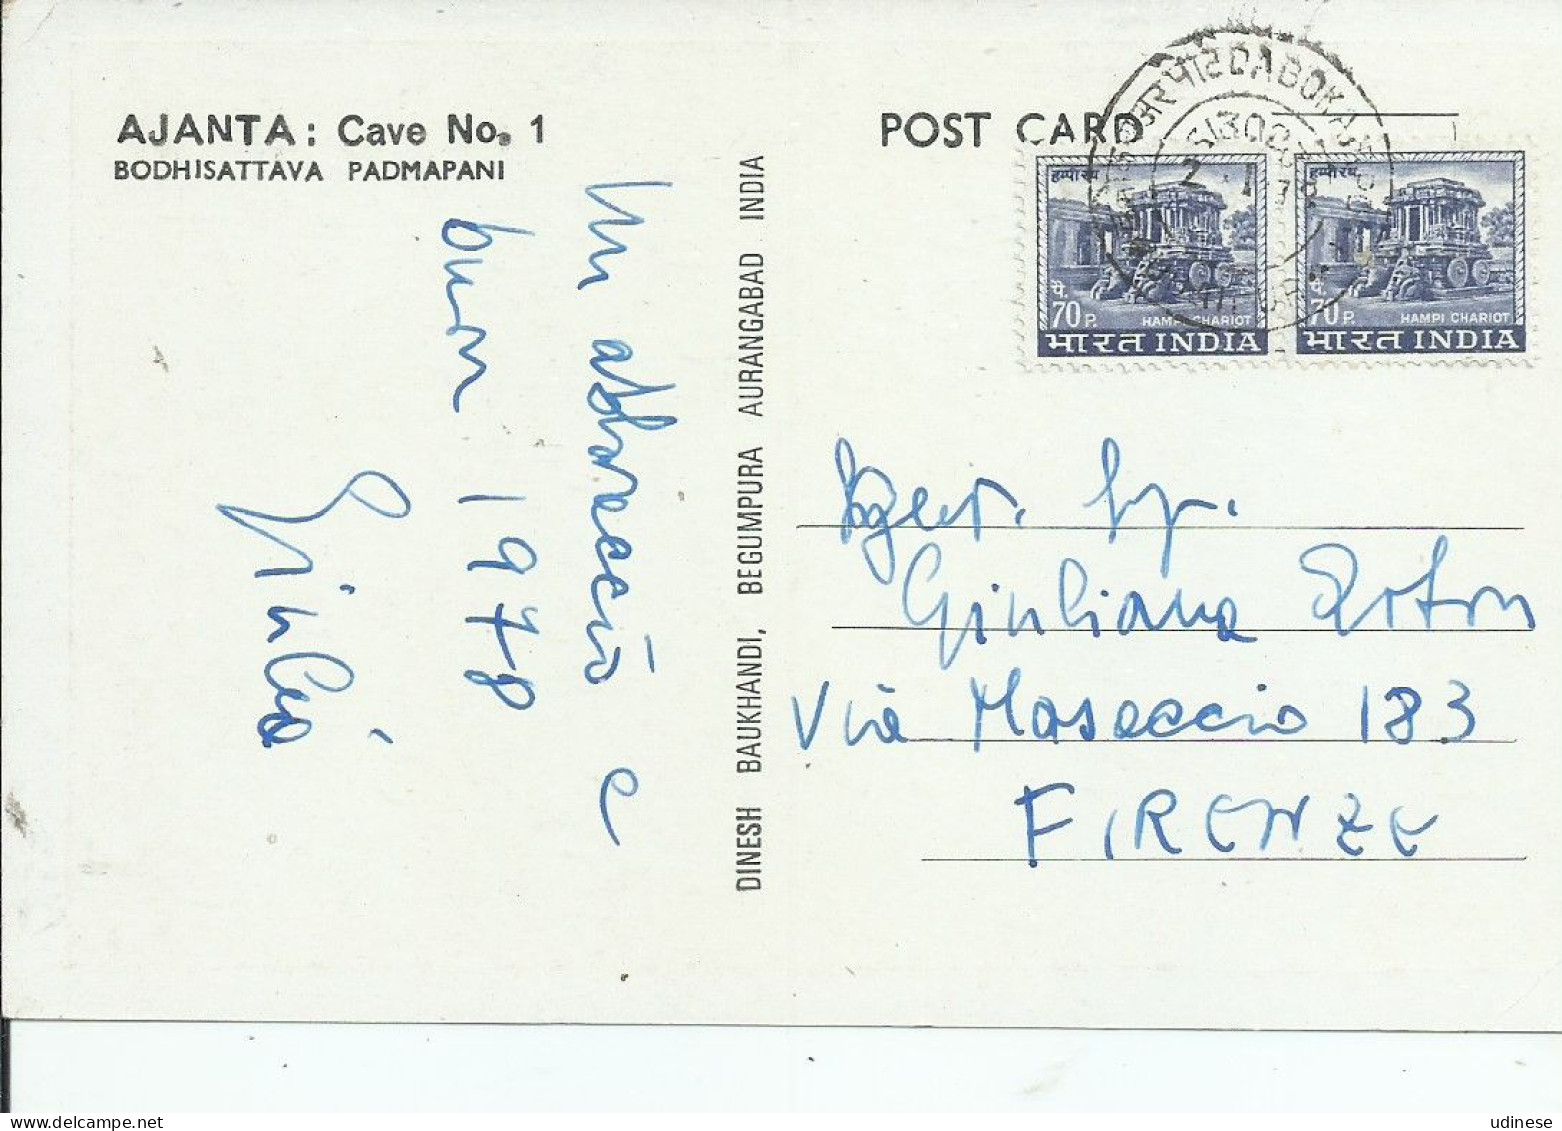 AJANTA: Cave No. 1
BODHISATTAVA PADMAPANI
Un abbraccio e
buon 1978
Giulia
DINESH BAUKHANDI, BEGUMPURA AURANGABAD INDIA
POST CARD
DABOKA
313022
हम्पी रथ
पै.
70 P.
HAMPI CHARIOT
भारत INDIA
हम्पी रथ
पै.
70 P.
HAMPI CHARIOT
भारत INDIA
Giuliana
Via Masaccio 183
FIRENZE
udinese